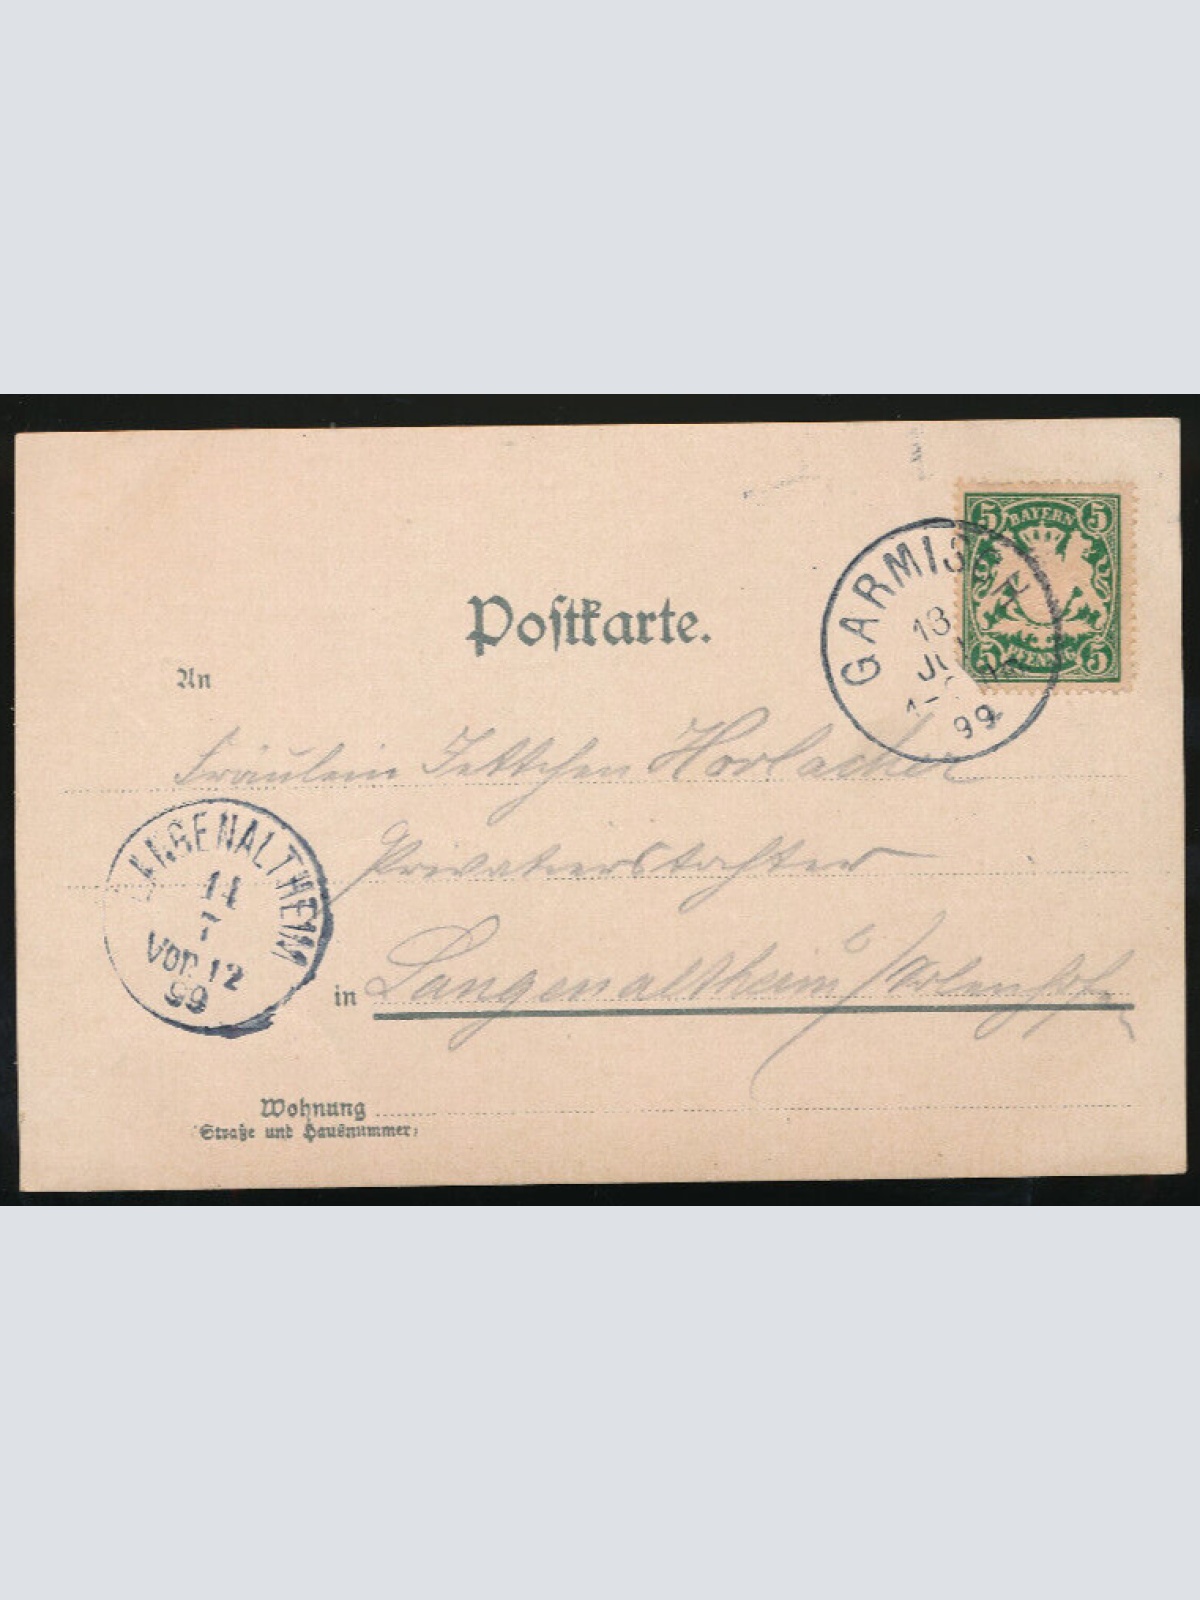 5 BAYERN 5
5 PFENNIG 5
GARMISCH
13
99
Postkarte.
An
Fräulein Jettchen Horlacher
Privatierstochter
LANGENALTHEIM
14
7
VOR. 12
99
in Langenaltheim
Wohnung
(Straße und Hausnummer)